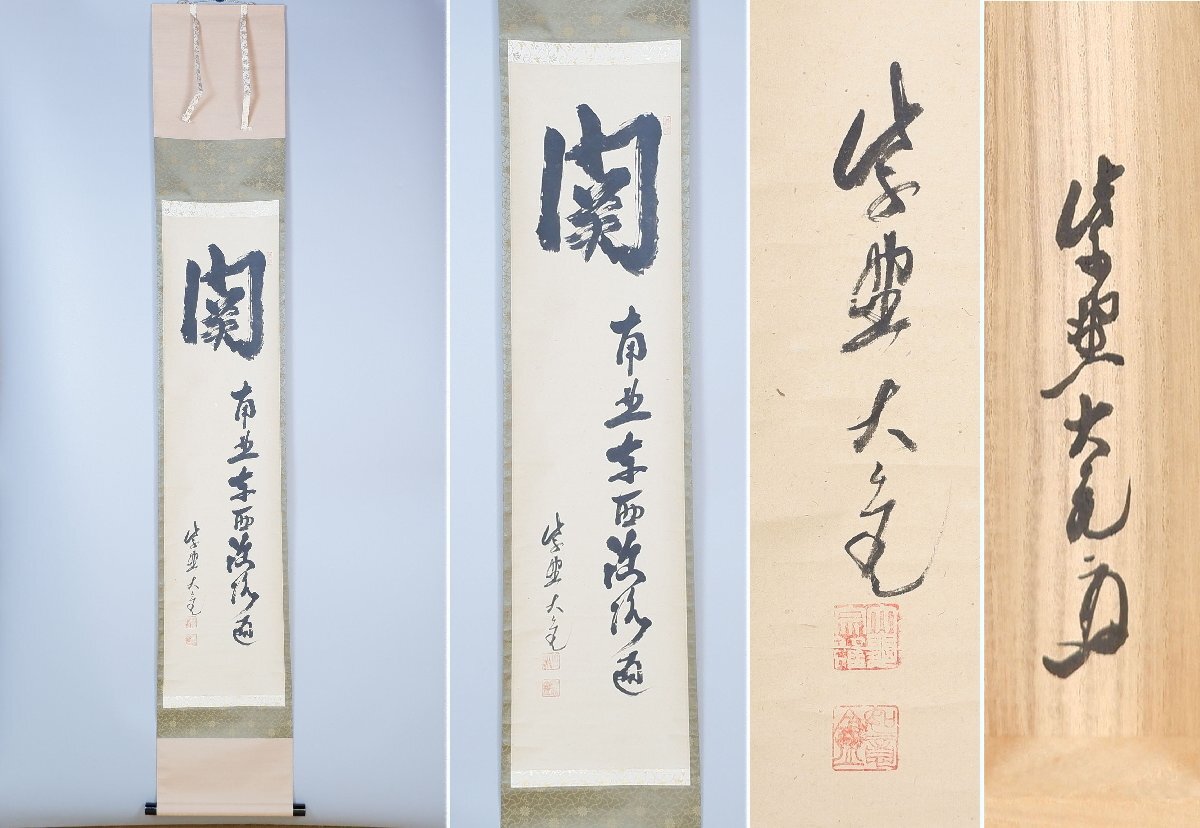 関
南北東西活路通
紫埜大亀
関
南北東西活路通
紫埜大亀
紫埜大亀
紫埜大亀